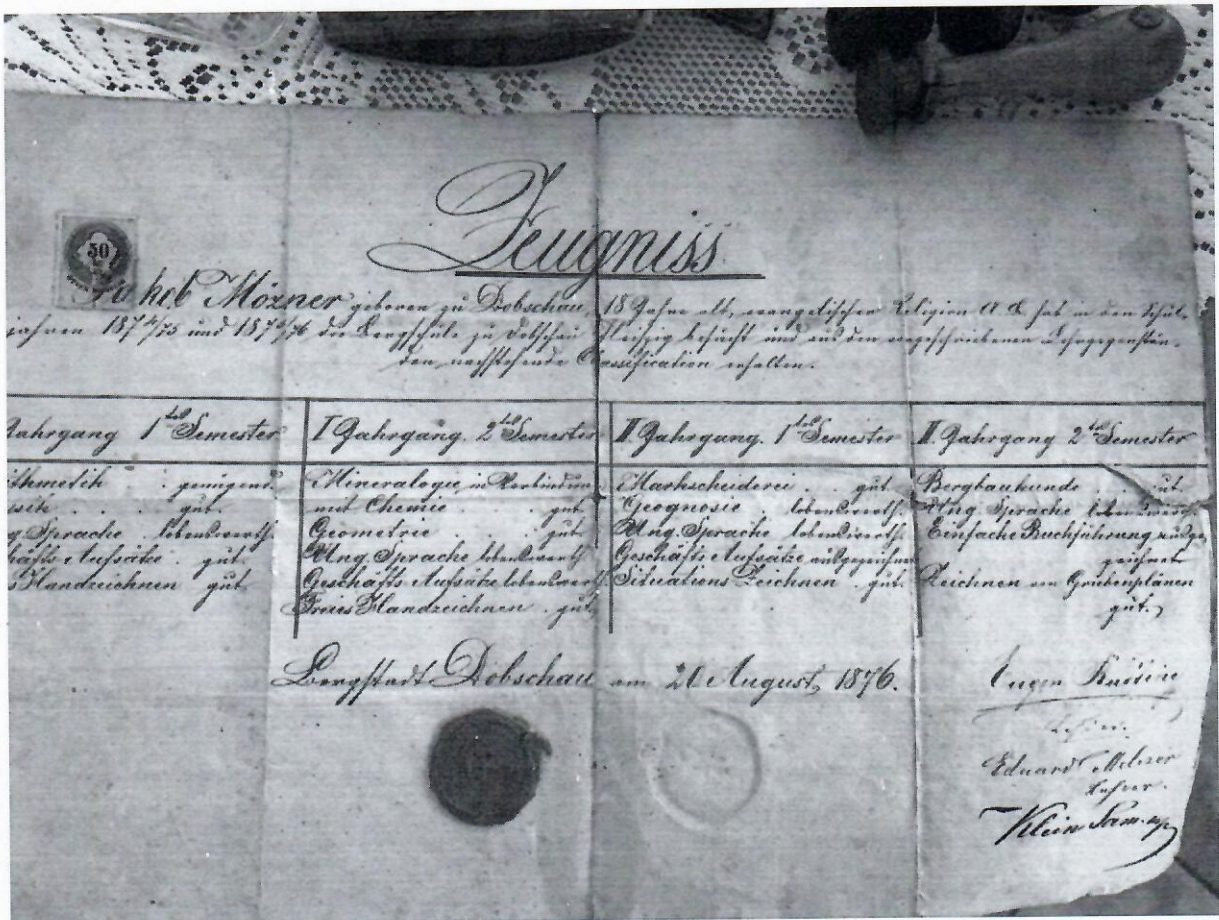 50
Zeugniss
Jakob Mözner geboren zu Dobschau, 18 Jahre alt, evangelischer Religion A. C. hat in den Schul-
jahren 1874/75 und 1875/76 die Bergschule zu Dobschau fleissig besucht und aus den vorgeschriebenen Lehrgegenstän-
den nachstehende Classification erhalten.
Jahrgang 1tes Semester
ithmetik . genügend
gut.
g Sprache . lobenswerth.
häfts Aufsätze . gut.
s Handzeichnen gut.
I Jahrgang. 2tes Semester
Mineralogie in Verbindung
mit Chemie . gut.
Geometrie . . gut.
Ung. Sprache lobenswerth
Geschäfts Aufsätze lobenswerth.
Freies Handzeichnen . gut.
II Jahrgang. 1tes Semester
Markscheiderei . . gut.
Geognosie . lobenswerth.
Ung. Sprache lobenswerth.
Geschäfts Aufsätze ausgezeichnet
Situations Zeichnen . gut.
II. Jahrgang 2tes Semester
Bergbaukunde . . gut.
Ung Sprache lobenswerth.
Einfache Buchführung ausge
zeichnet
Zeichnen von Grubenplänen
gut.
Bergstadt Dobschau am 20 August, 1876.
Eugen
Eduard Melczer
Lehrer.
Klein Sam.